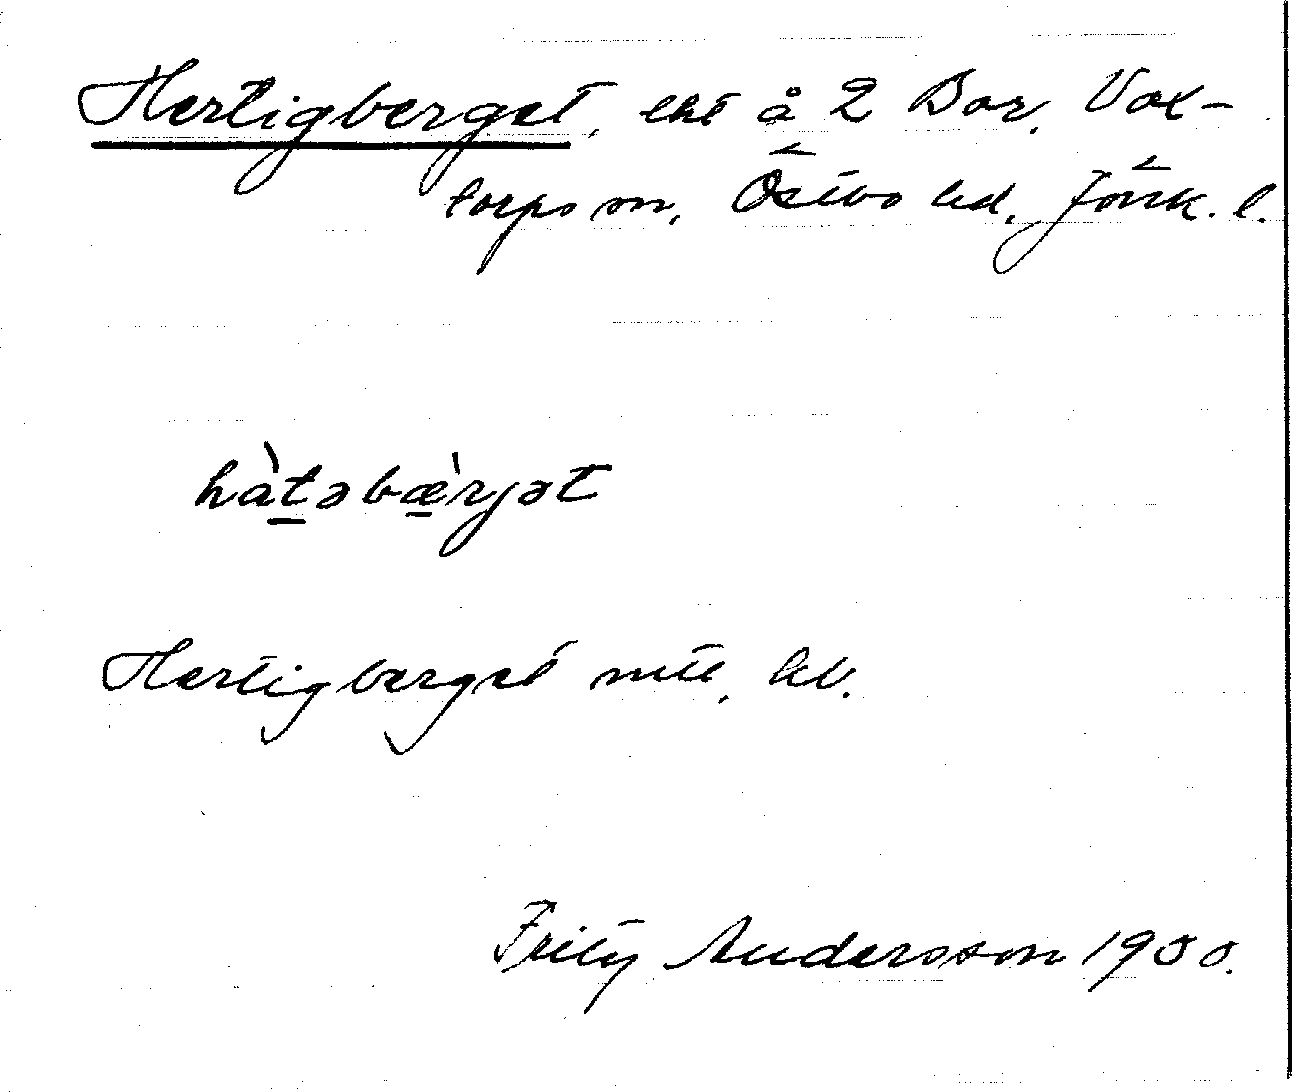 Hertigberget, lht å 2 Bor, Vox-
torps sn, Östbo hd, Jönk. l.
hàtəbæ̀rjət
Hertigberget mtl, kb.
Fritz Andersson 1930.